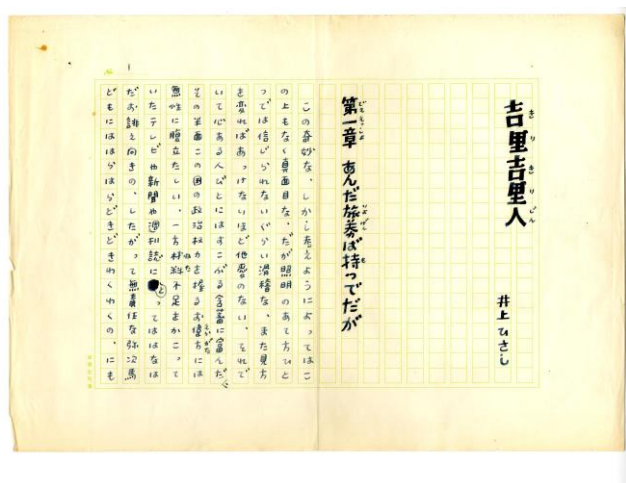 吉里吉里人
きりきりじん
井上ひさし
第一章 あんだ旅券ば持ってだが
この奇妙な、しかし考えようによってはこ
の上もなく真面目な、だが照明のあて方ひと
つでは信じられないぐらい滑稽な、また見方
を変ればあっけないほど他愛のない、それで
いて心ある人びとにはすこぶる含蓄に富んだ
その半面この国の政治権力を握るお偉方には
無性に腹立たしい、一方材料不足をかこって
いたテレビや新聞や週刊誌にとってははなは
だお誂え向きの、したがって無責任な弥次馬
どもにははらはらどきどきわくわくの、にも